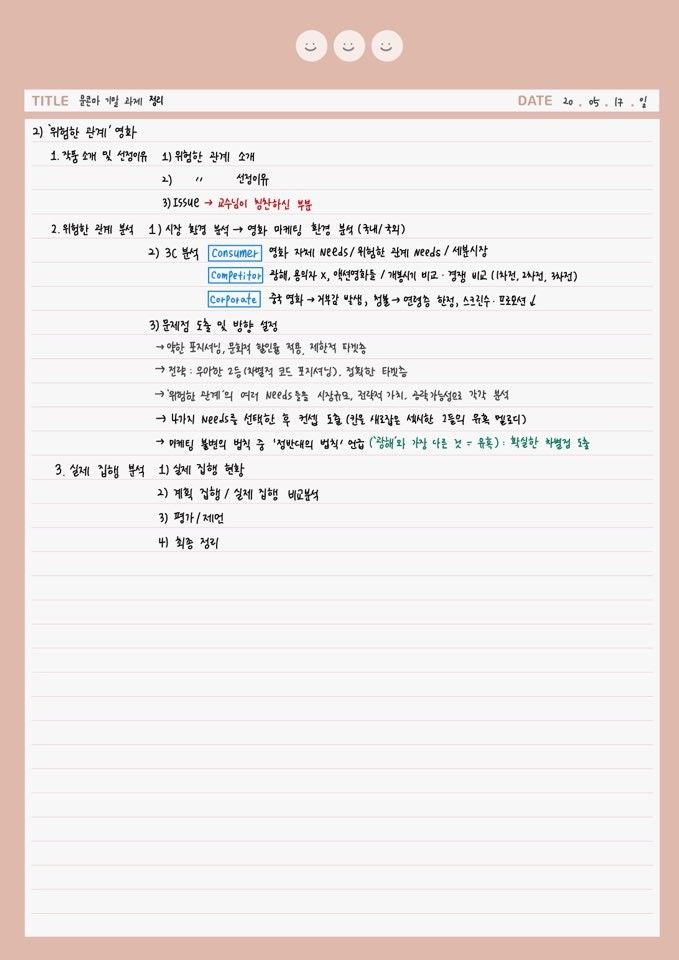 TITLE 문콘마 기말 과제 정리 DATE 20 . 05 . 17 . 일
2) '위험한 관계' 영화
1. 작품 소개 및 선정이유 1) 위험한 관계 소개
2) 〃 선정이유
3) Issue → 교수님이 칭찬하신 부분
2. 위험한 관계 분석 1) 시장 환경 분석 → 영화 마케팅 환경 분석 (국내/국외)
2) 3C 분석 Consumer 영화 자체 Needs / 위험한 관계 Needs / 세분시장
Competitor 광해, 용의자 X, 액션영화들 / 개봉시기 비교 · 경쟁 비교 (1차전, 2차전, 3차전)
Corporate 중국 영화 → 거부감 발생, 청불 → 연령층 한정, 스크린수 · 프로모션 ↓
3) 문제점 도출 및 방향 설정
→ 약한 포지셔닝, 문화적 할인율 적용, 제한적 타겟층
→ 전략 : 우아한 2등 (차별적 코드 포지셔닝), 정확한 타겟층
→ '위험한 관계'의 여러 Needs들을 시장규모, 전략적 가치, 공략가능성으로 각각 분석
→ 4가지 Needs를 선택한 후 컨셉 도출 (칸을 사로잡은 섹시한 2등의 유혹 멜로디)
→ 마케팅 불변의 법칙 중 '정반대의 법칙' 언급 ('광해'와 가장 다른 것 = 유혹) : 확실한 차별점 도출
3. 실제 집행 분석 1) 실제 집행 현황
2) 계획 집행 / 실제 집행 비교분석
3) 평가 / 제언
4) 최종 정리